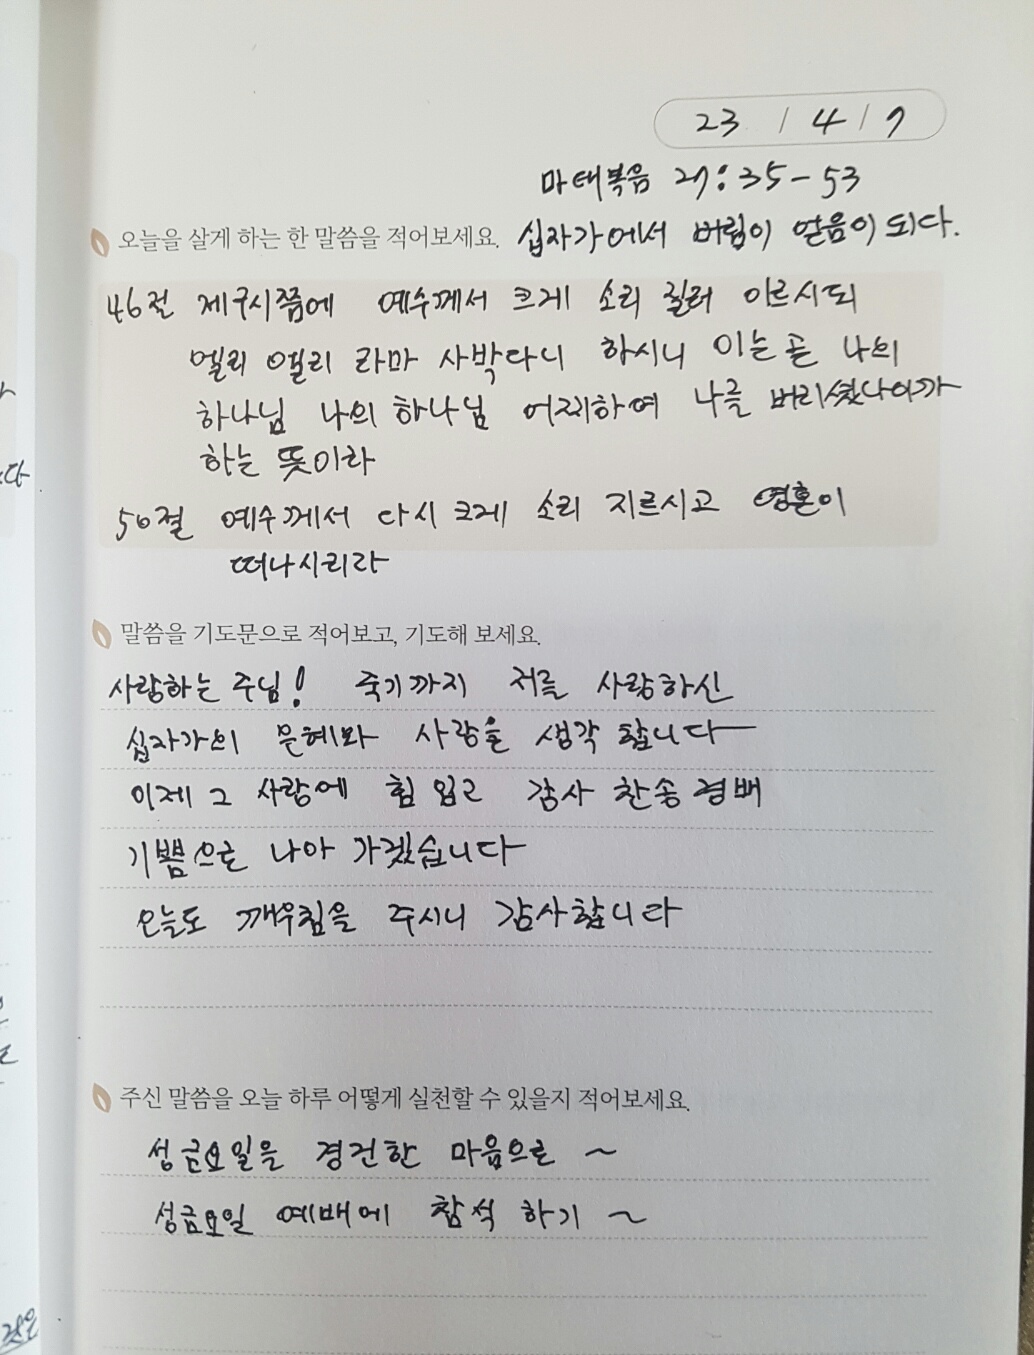 23 / 4 / 7
마태복음 27:35-53
오늘을 살게 하는 한 말씀을 적어보세요. 십자가에서 버림이 얻음이 되다.
46절 제구시쯤에 예수께서 크게 소리 질러 이르시되
엘리 엘리 라마 사박다니 하시니 이는 곧 나의
하나님 나의 하나님 어찌하여 나를 버리셨나이까
하는 뜻이라
50절 예수께서 다시 크게 소리 지르시고 영혼이
떠나시리라
말씀을 기도문으로 적어보고, 기도해 보세요.
사랑하는 주님! 죽기까지 저를 사랑하신
십자가의 은혜와 사랑을 생각 합니다
이제 그 사랑에 힘 입고 감사 찬송 경배
기쁨으로 나아 가겠습니다
오늘도 깨우침을 주시니 감사합니다
주신 말씀을 오늘 하루 어떻게 실천할 수 있을지 적어보세요.
성금요일을 경건한 마음으로 ~
성금요일 예배에 참석 하기 ~